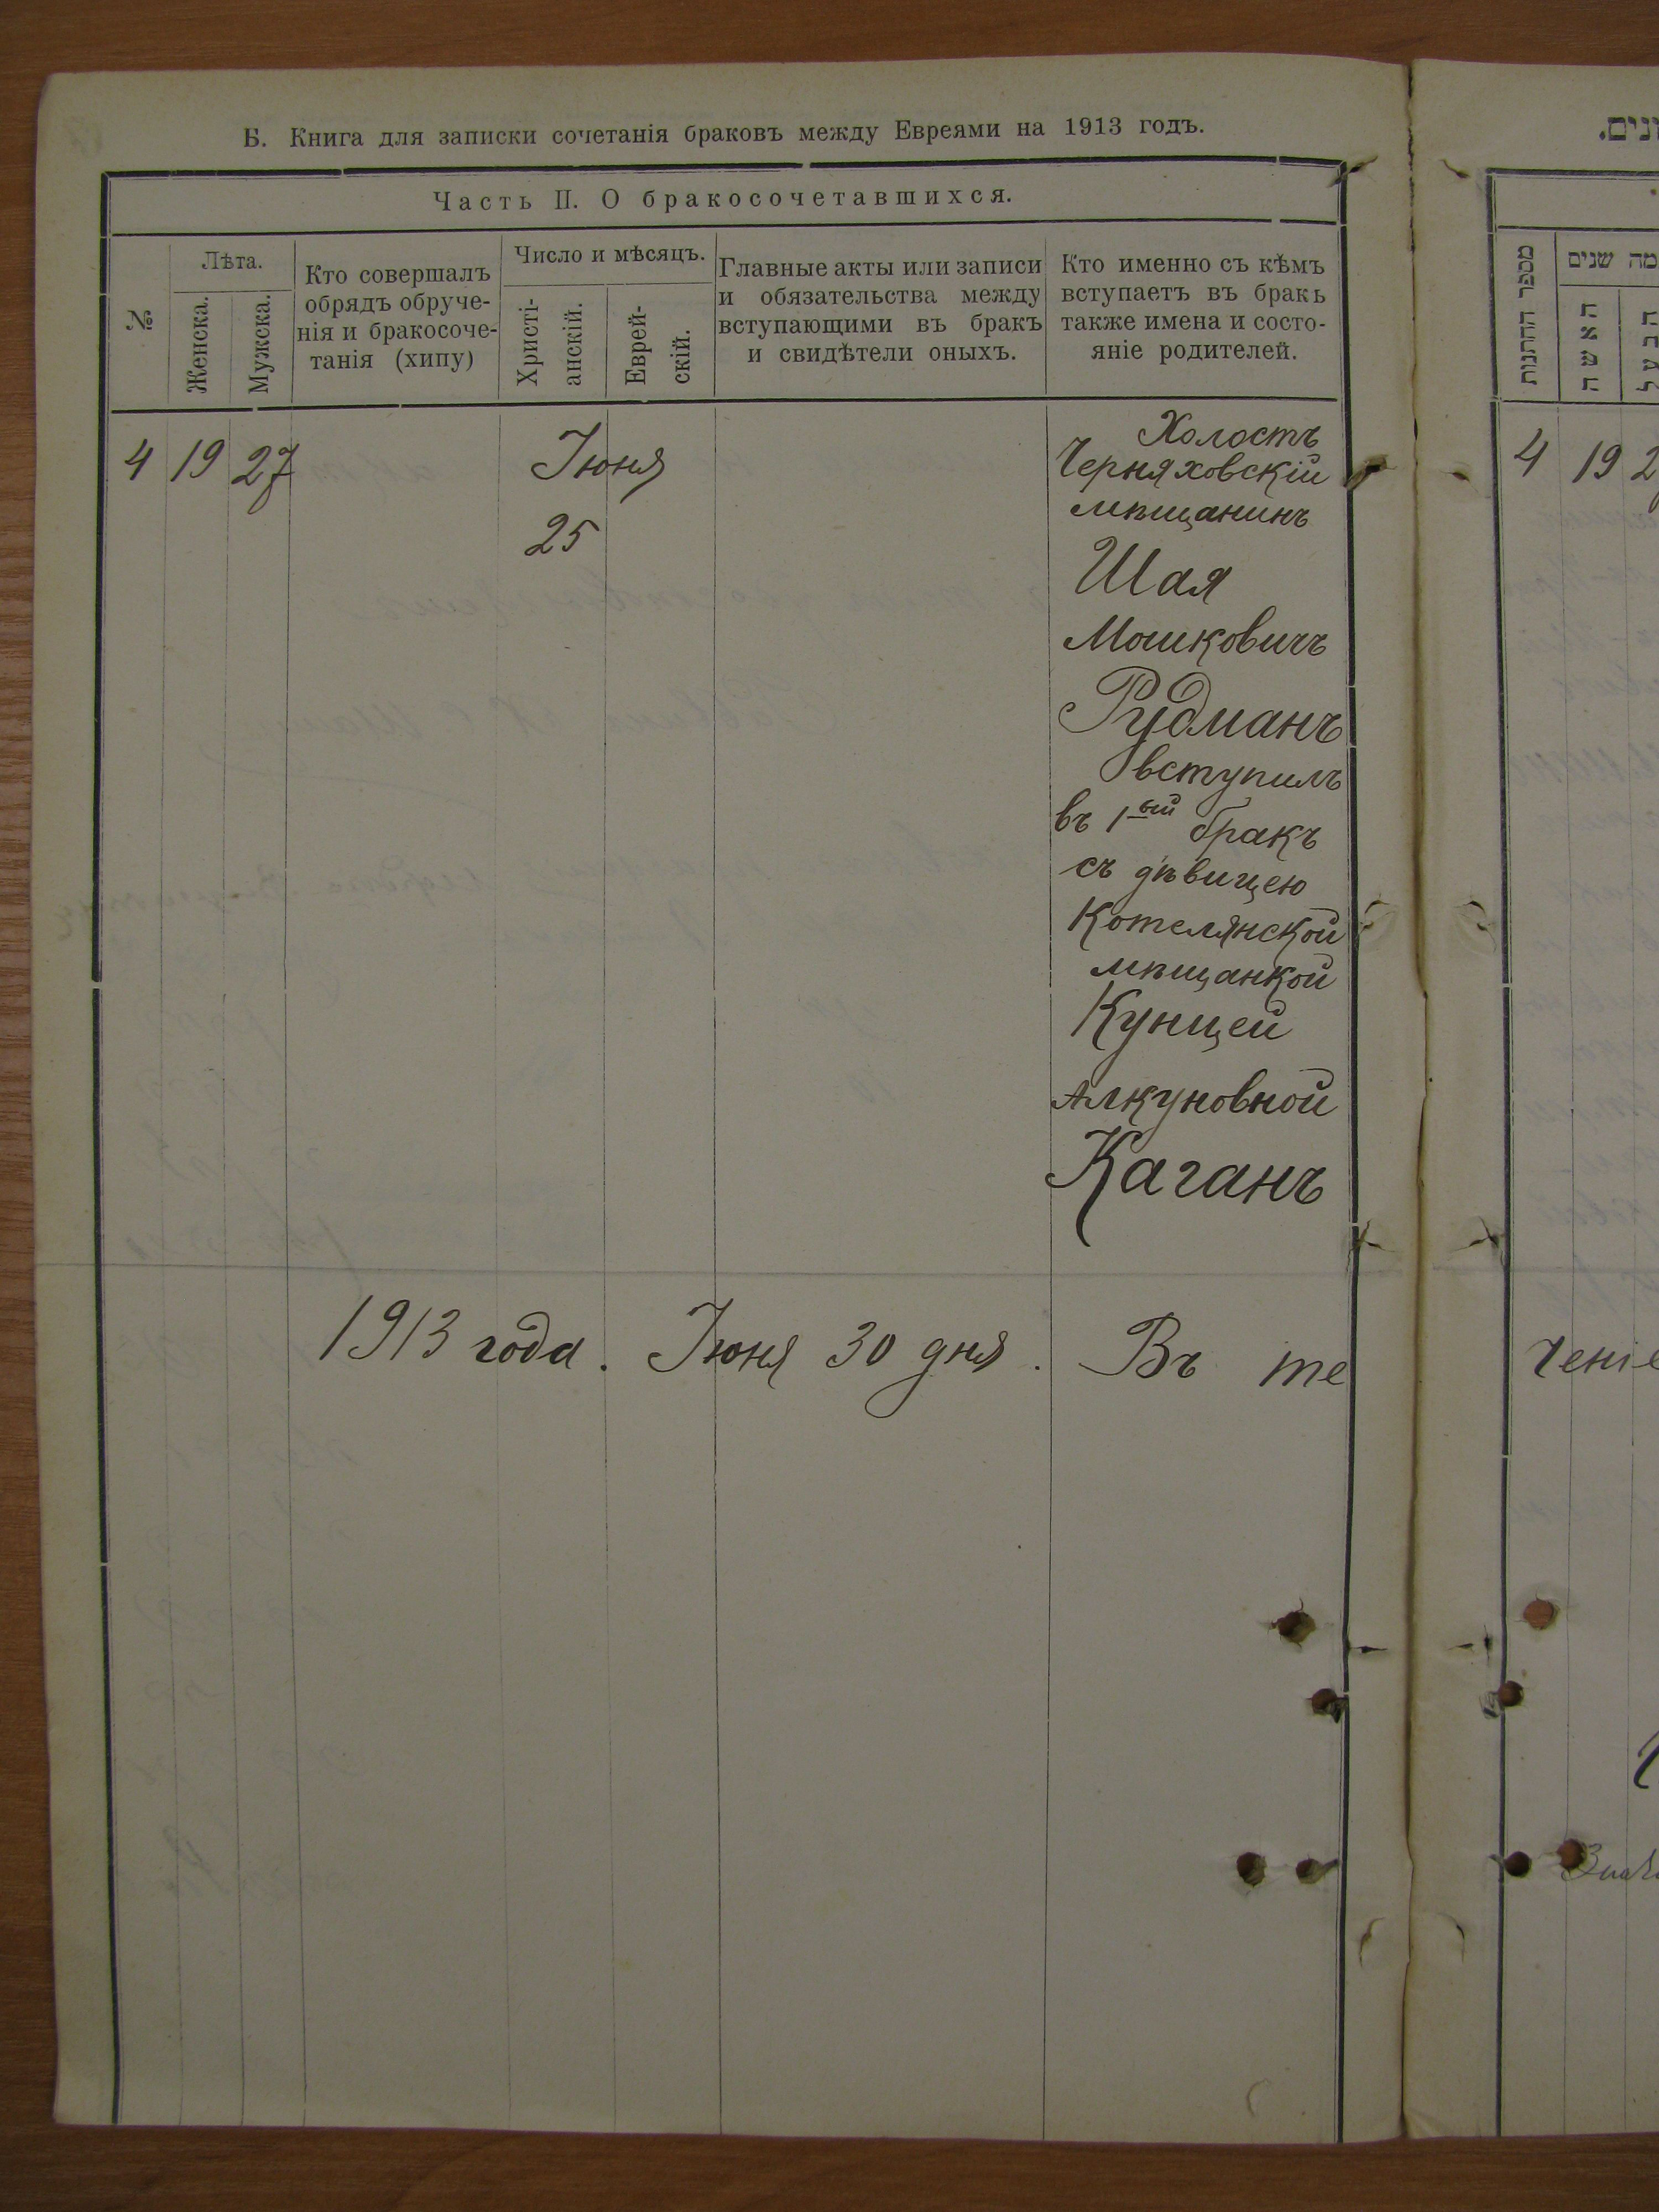 Б. Книга для записки сочетанія браковъ между Евреями на 1913 годъ.
Часть II. О бракосочетавшихся.
№
Лѣта.
Женска.
Мужска.
Кто совершалъ
обрядъ обруче-
нія и бракосоче-
танія (хипу)
Число и мѣсяцъ.
Христі-
анскій.
Еврей-
скій.
Главные акты или записи
и обязательства между
вступающими въ бракъ
и свидѣтели оныхъ.
Кто именно съ кѣмъ
вступаетъ въ бракъ
также имена и состо-
яніе родителей.
4 19 27
Іюня
25
Холостъ
Черняховскій
мѣщанинъ
Шая
Мошковичъ
Рудманъ
вступилъ
въ 1ый бракъ
съ дѣвицею
Котелянской
мѣщанкой
Кунцей
Алкуновной
Каганъ
1913 года. Іюня 30 дня. Въ те
מספר החתנות
מה שנים
האשה
הבעל
4 19 2
ченіе